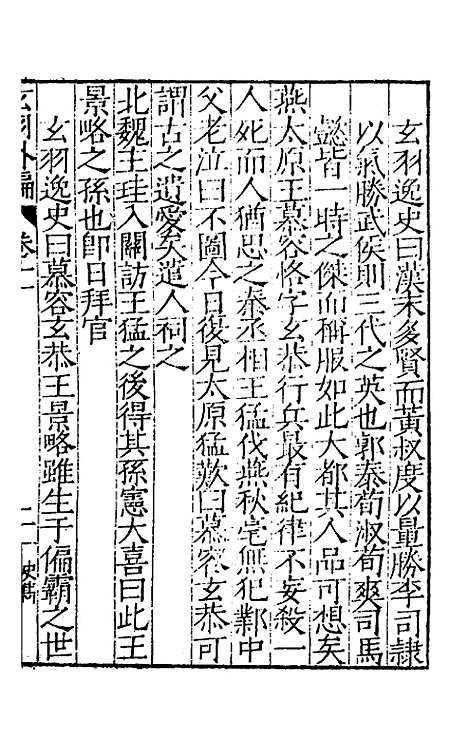 玄羽逸史曰漢末多賢而黃叔度以量勝李司隷
以氣勝武侯則三代之英也郭泰荀淑荀爽司馬
懿皆一時之傑而稱服如此大都其人品可想矣
燕太原王慕容恪字玄恭行兵最有紀律不妄殺一
人死而人猶思之秦丞相王猛伐燕秋毫無犯鄴中
父老泣曰不圖今日復見太原猛歎曰慕容玄恭可
謂古之遺愛矣遣人祠之
北魏主珪入關訪王猛之後得其孫憲大喜曰此王
景略之孫也卽日拜官
玄羽逸史曰慕容玄恭王景略雖生于偏霸之世
玄羽外編
卷十一
二
史雋